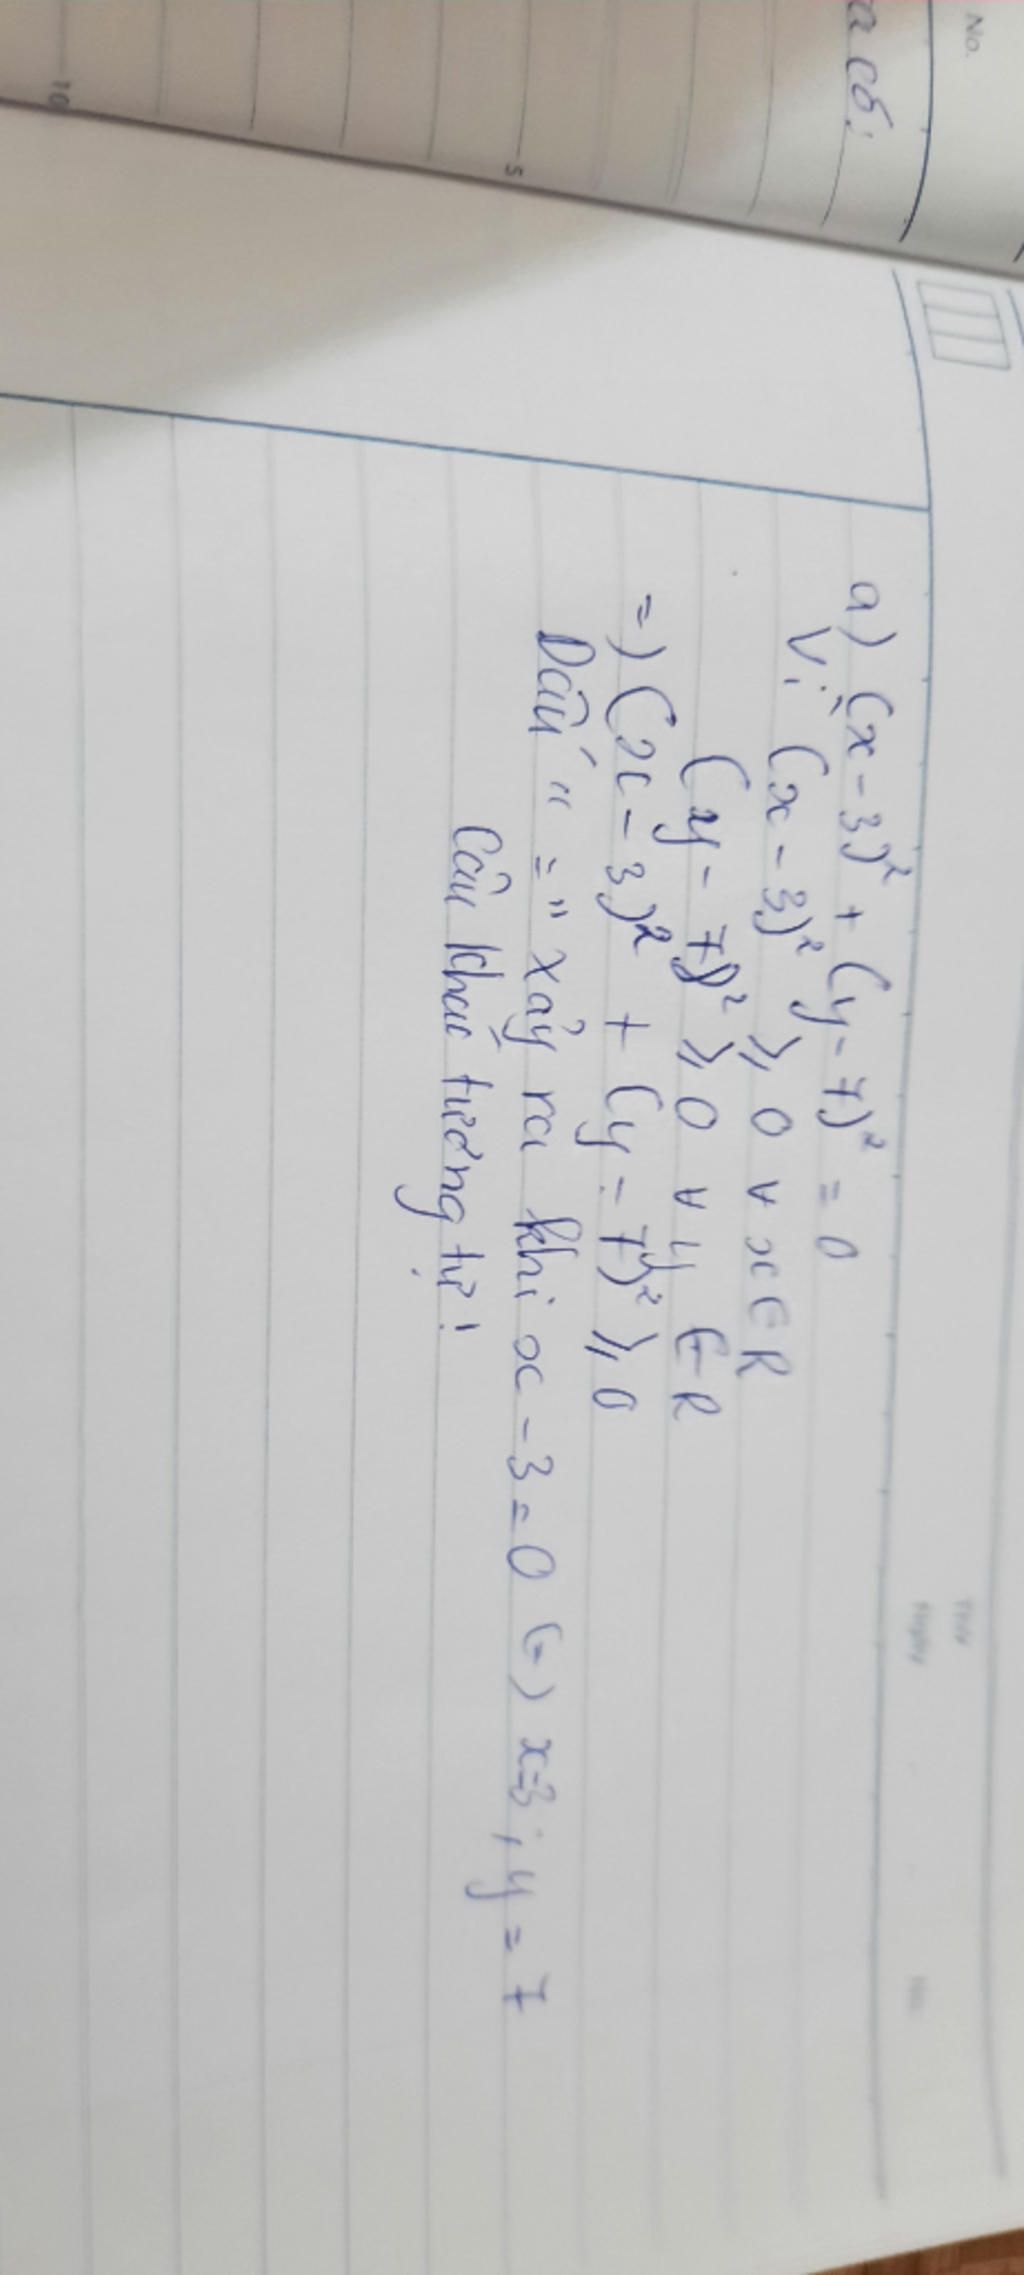 No.
a có:
5
10
a) (x - 3)² + (y - 7)² = 0
Vì (x - 3)² ⩾ 0 ∀ x ∈ R
(y - 7)² ⩾ 0 ∀ y ∈ R
=) (x - 3)² + (y - 7)² ⩾ 0
Dấu " = " xảy ra khi x - 3 = 0 (=) x=3 ; y = 7
Câu khác tương tự !